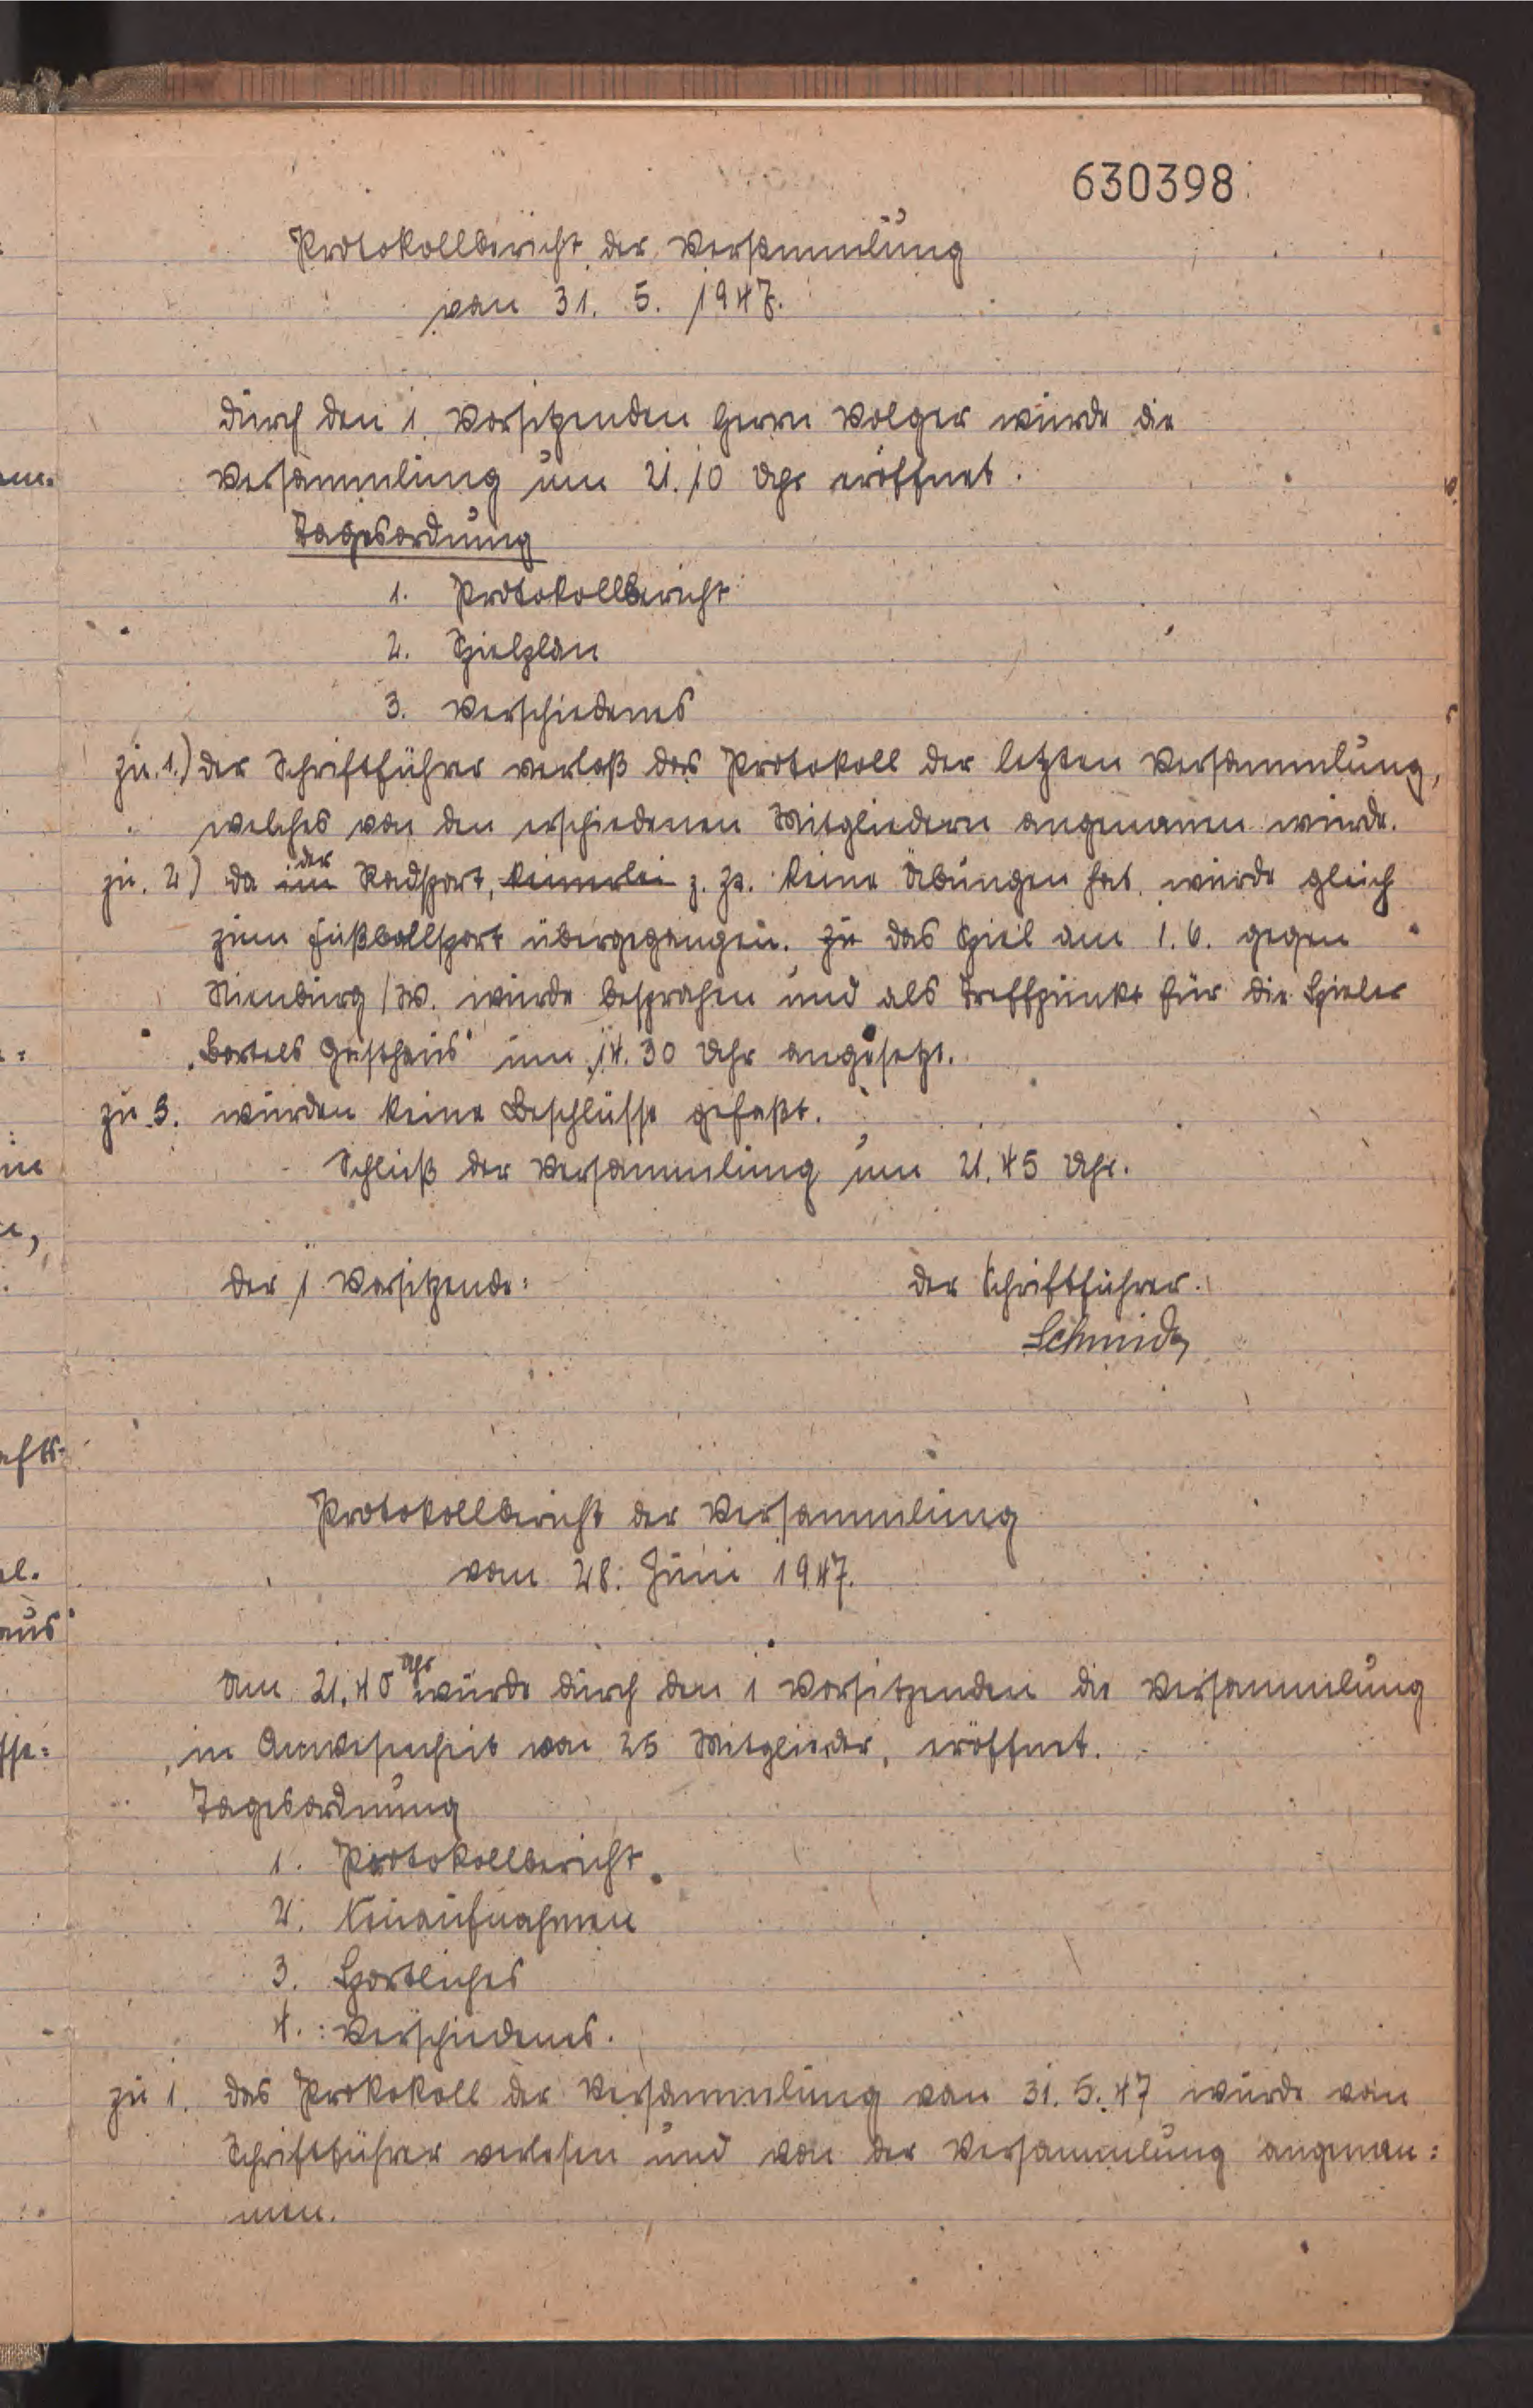 630398
Protokollbericht der Versammlung
von 31. 5. 1947.
Durch den 1. Vorsitzenden Herrn Volger wurde die
Versammlung um 21.10 Uhr eröffnet.
Tagesordnung
1. Protokollbericht
2. Spielplan
3. Verschiedenes
zu. 1.) Der Schriftführer verlaß das Protokoll der letzten Versammlung,
welches von den erschiedenen Mitgliedern angenomen wurde.
zu. 2) Da im der Radsport, keinerlei z. Zt. keine Übungen hat, wurde gleich
zum Fußballsport übergegangen. Zu das Spiel am 1.6. gegen
Nienburg/W. wurde besprahen und als Treffpunkt für die Spieler
„Bartels Gasthaus" um 14.30 Uhr angesetzt.
zu 3. wurden keine Beschlüsse gefaßt.
Schluß der Versammlung um 21.45 Uhr.
Der 1. Vorsitzende:
Der Schriftführer.
Schmidt
Protokollbericht der Versammlung
vom 28. Juni 1947.
Um 21.40 Uhr wurde durch den 1 Vorsitzenden die Versammlung
in Anwesenheit von 25 Mitglieder, eröffnet.
Tagesordnung
1. Protokollbericht
2. Neuaufnahmen
3. Sportliches
4. Verschiedenes.
zu 1. Das Prokokoll der Versammlung von 31.5.47 wurde von
Schriftführer verlesen und von der Versammlung angenom:
men.